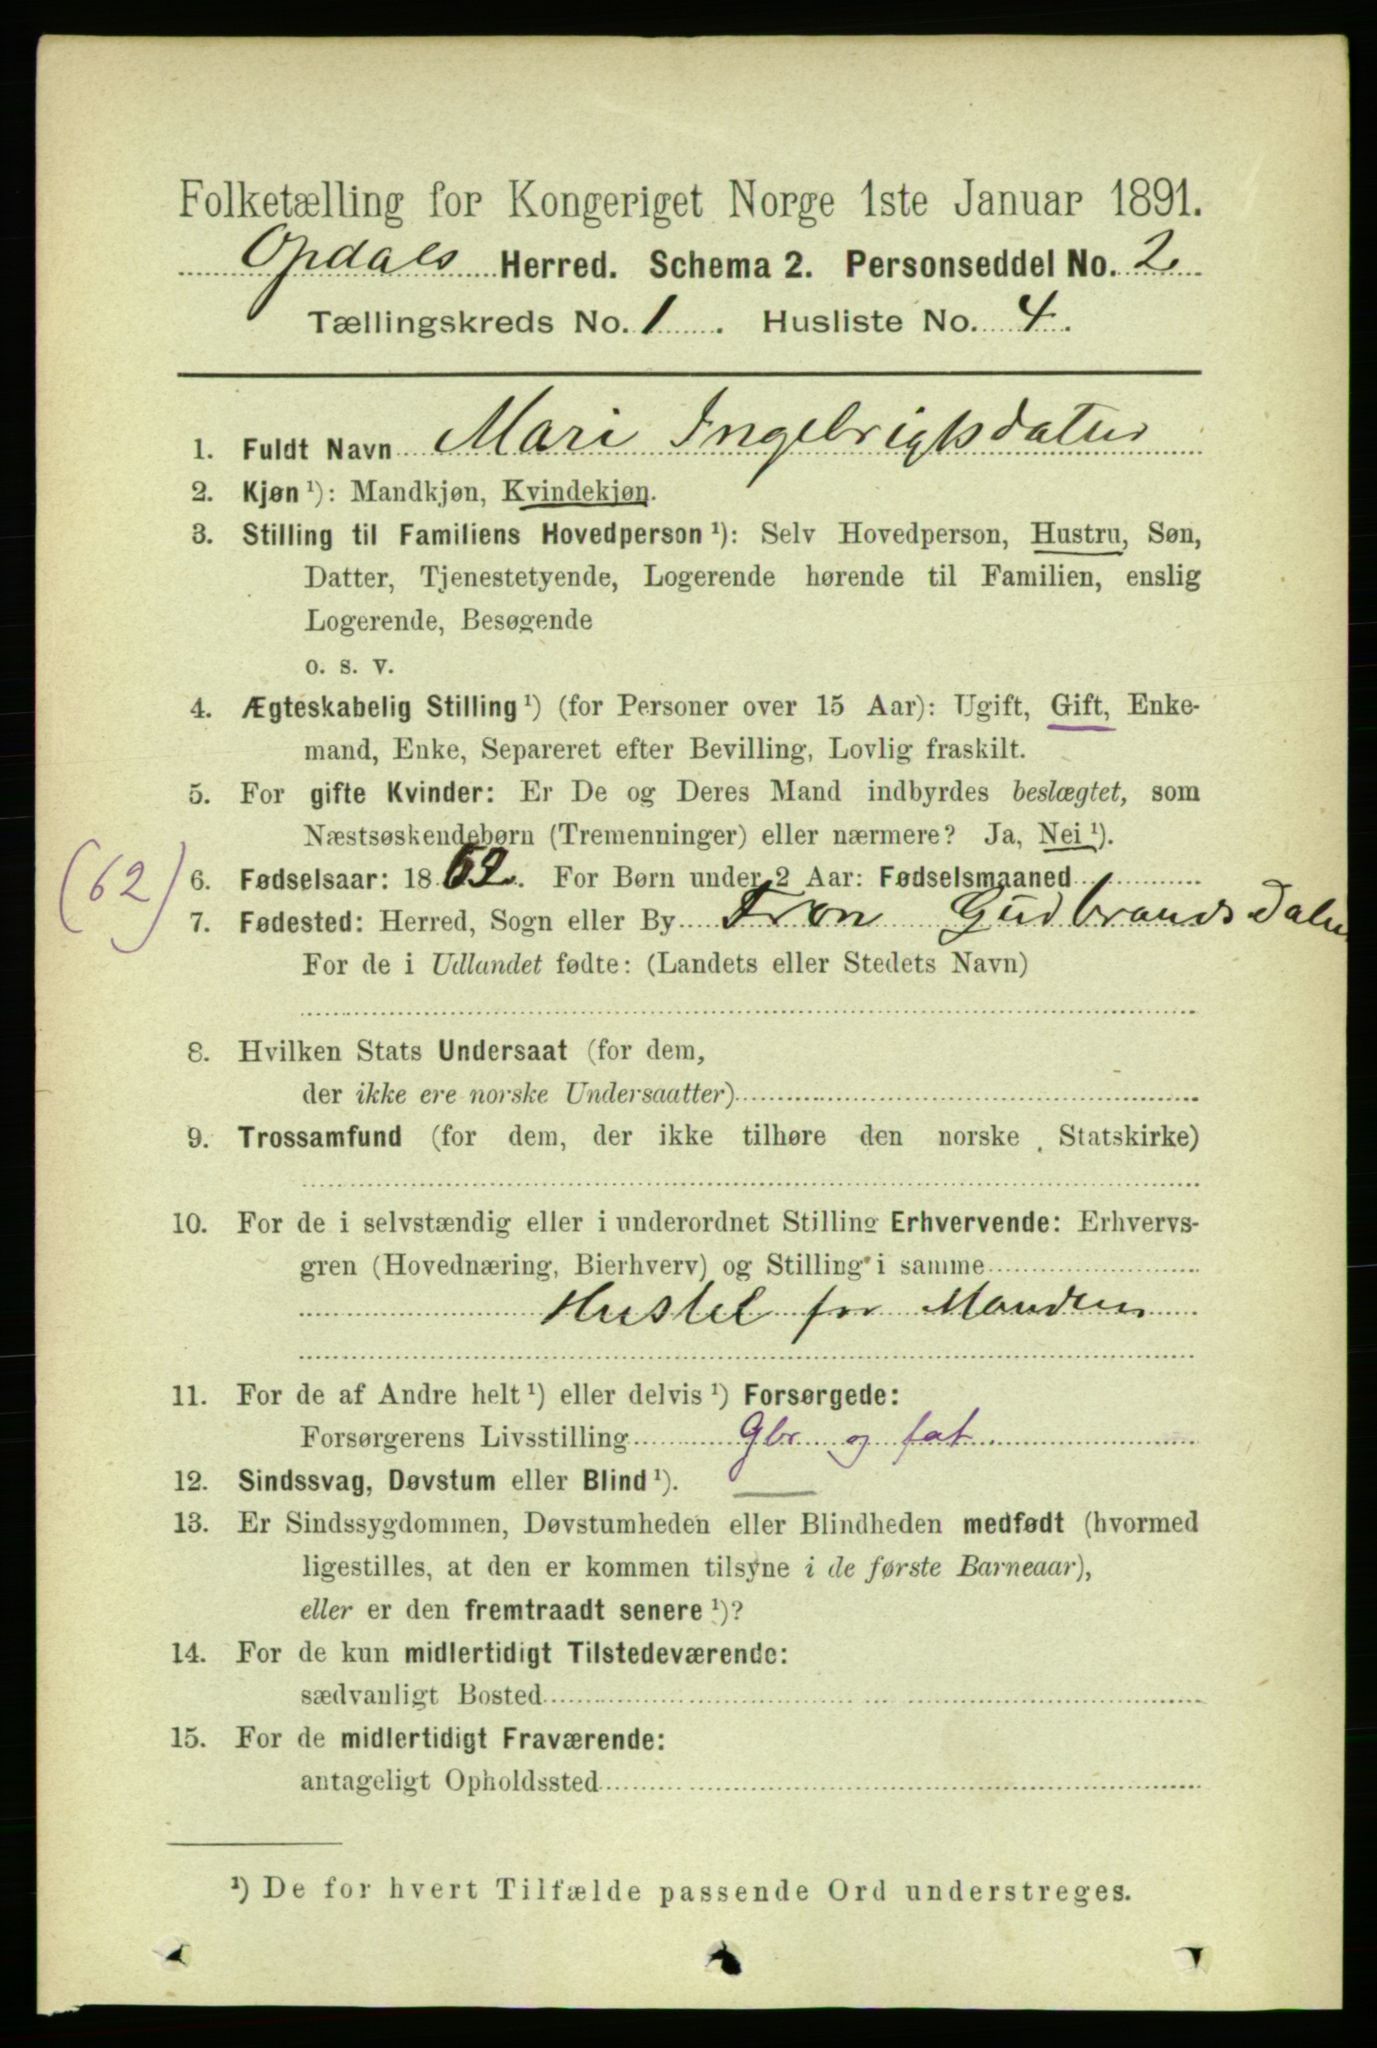 Folketælling for Kongeriget Norge 1ste Januar 1891.
Opdals Herred. Schema 2. Personseddel No. 2.
Tællingskreds No. 1. Husliste No. 4.
1. Fuldt Navn Mari Ingebrigtsdatter
2. Kjøn ¹): Mandkjøn, Kvindekjøn.
3. Stilling til Familiens Hovedperson ¹): Selv Hovedperson, Hustru, Søn,
Datter, Tjenestetyende, Logerende hørende til Familien, enslig
Logerende, Besøgende
o. s. v.
4. Ægteskabelig Stilling ¹) (for Personer over 15 Aar): Ugift, Gift, Enke-
mand, Enke, Separeret efter Bevilling, Lovlig fraskilt.
5. For gifte Kvinder: Er De og Deres Mand indbyrdes beslægtet, som
Næstsøskendebørn (Tremenninger) eller nærmere? Ja, Nei ¹).
(62) 6. Fødselsaar: 1862. For Børn under 2 Aar: Fødselsmaaned
7. Fødested: Herred, Sogn eller By Fron Gudbrandsdalen
For de i Udlandet fødte: (Landets eller Stedets Navn)
8. Hvilken Stats Undersaat (for dem,
der ikke ere norske Undersaatter)
9. Trossamfund (for dem, der ikke tilhøre den norske Statskirke)
10. For de i selvstændig eller i underordnet Stilling Erhvervende: Erhvervs-
gren (Hovednæring, Bierhverv) og Stilling i samme
Hustel for Manden
11. For de af Andre helt ¹) eller delvis ¹) Forsørgede:
Forsørgerens Livsstilling Gbr og fat
12. Sindssvag, Døvstum eller Blind ¹).
13. Er Sindssygdommen, Døvstumheden eller Blindheden medfødt (hvormed
ligestilles, at den er kommen tilsyne i de første Barneaar),
eller er den fremtraadt senere ¹)?
14. For de kun midlertidigt Tilstedeværende:
sædvanligt Bosted
15. For de midlertidigt Fraværende:
antageligt Opholdssted
¹) De for hvert Tilfælde passende Ord understreges.